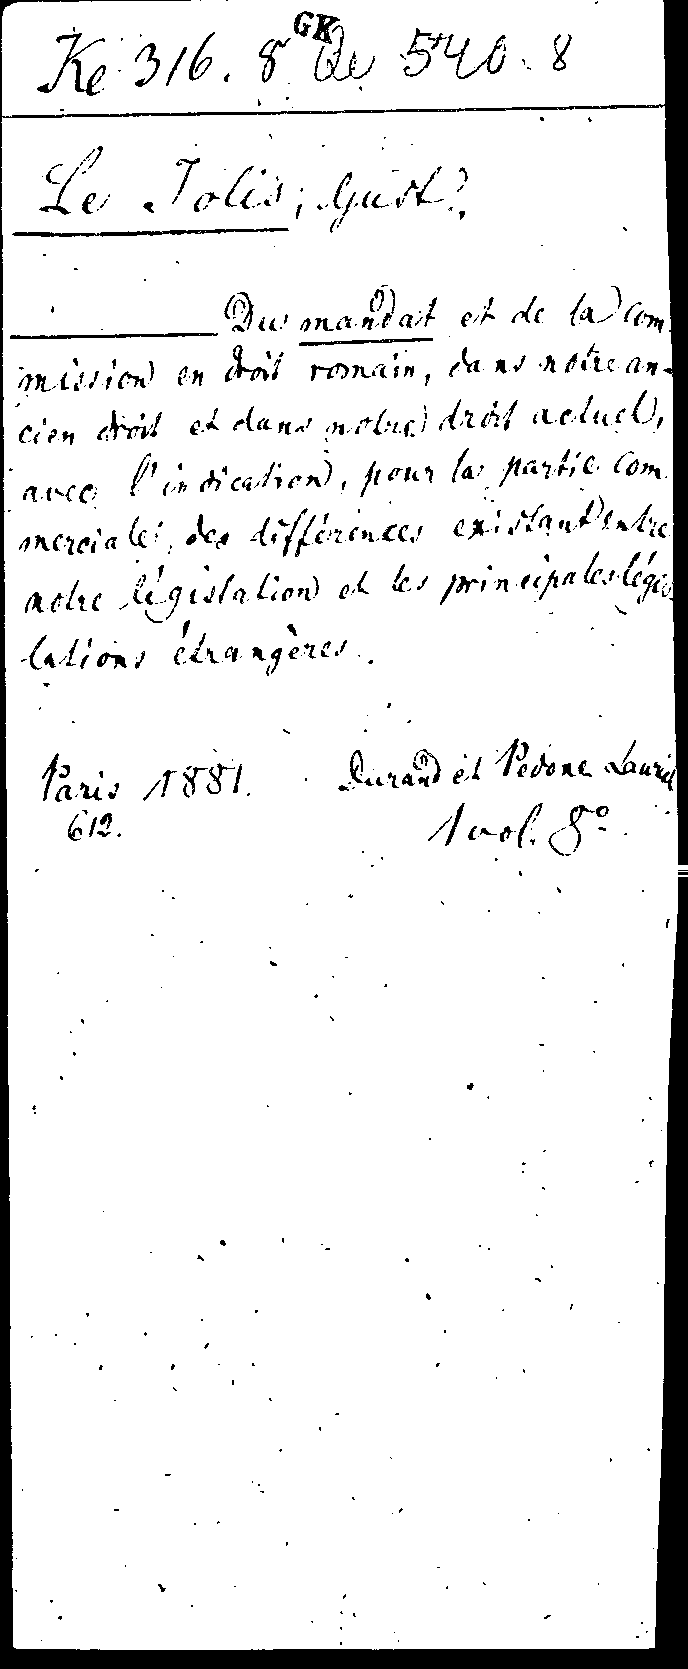 GK
Ke 316. 8 Qe 540. 8
Le Jolis, Gust.
Du mandat et de la com
mission en droit romain, dans notre an-
cien droit et dans notre droit actuel,
avec l'indication, pour la partie com
merciale, des différences existant entre
notre législation et les principales légis
lations étrangères.
Paris 1881. Durand et Pedone Lauriel
612. 1 vol. 8º